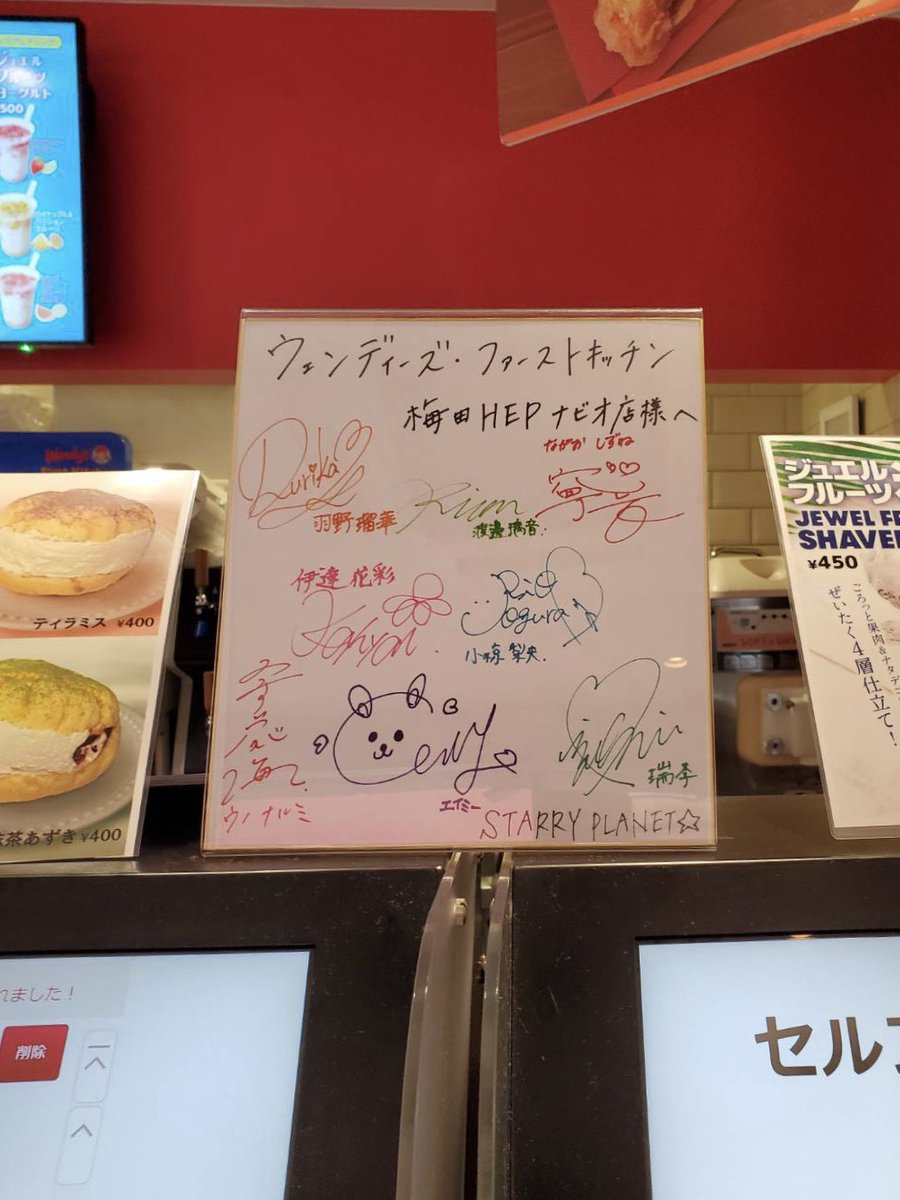 ジュエル
フルーツ
ヨーグルト
500
Wendy's
First Kitchen
ウェンディーズ・ファーストキッチン
梅田HEPナビオ店様へ
ながか しずね
Rurika
羽野瑠華
Rion
渡邉璃音.
寧音
伊達花彩
Kahya.
Rio Ogura
小椋梨央.
宇咲海
ウノ ナルミ
emy
エイミー
瑞季
STARRY PLANET☆
ティラミス ¥400
抹茶あずき ¥400
ジュエル
フルーツ
JEWEL FR
SHAVE
¥450
ころっと果肉&ナタデコ
ぜいたく4層仕立て!
SOFT
れました!
削除
セルフ